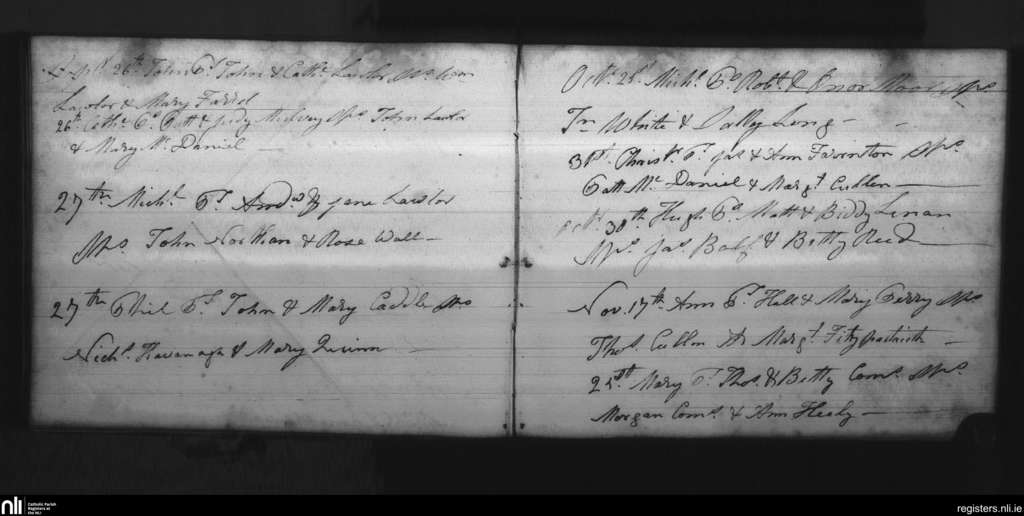 26th John Bp. John & Cathe. Lawlor Sps.
Lawlor & Mary Farrel
26th Cathe. Bp. Patt & Judy Sps. John Lawlor
& Mary Mc. Daniel —
27th Michl. Bp. Andw. & Jane Lawlor
Sps. John Northan & Rose Wall —
27th Phil Bp. John & Mary Caddle Sps.
Nichs. Kavanagh & Mary Quinn —
Octr. 28th Michl. Bp. Robt. & Moor Sps
Jn White & Sally Long —
31st. Christr. Bp. Jas & Ann Farenton Sps.
Patt Mc. Daniel & Margt. Cullen —
Octr. 30th Hugh Bp. Matt & Biddy Linan
Sps. Jas. Balf & Betty Reed —
Nov. 17th. Ann Bp. & Mary Perry Sps
Thos. Cullen & Margt. Fitzpatrick —
25th. Mary Bp. Thos. & Betty Coms. Sps.
Morgan Coms. & Ann Healy —
nli Catholic Parish
Registers at
the NLI
registers.nli.ie